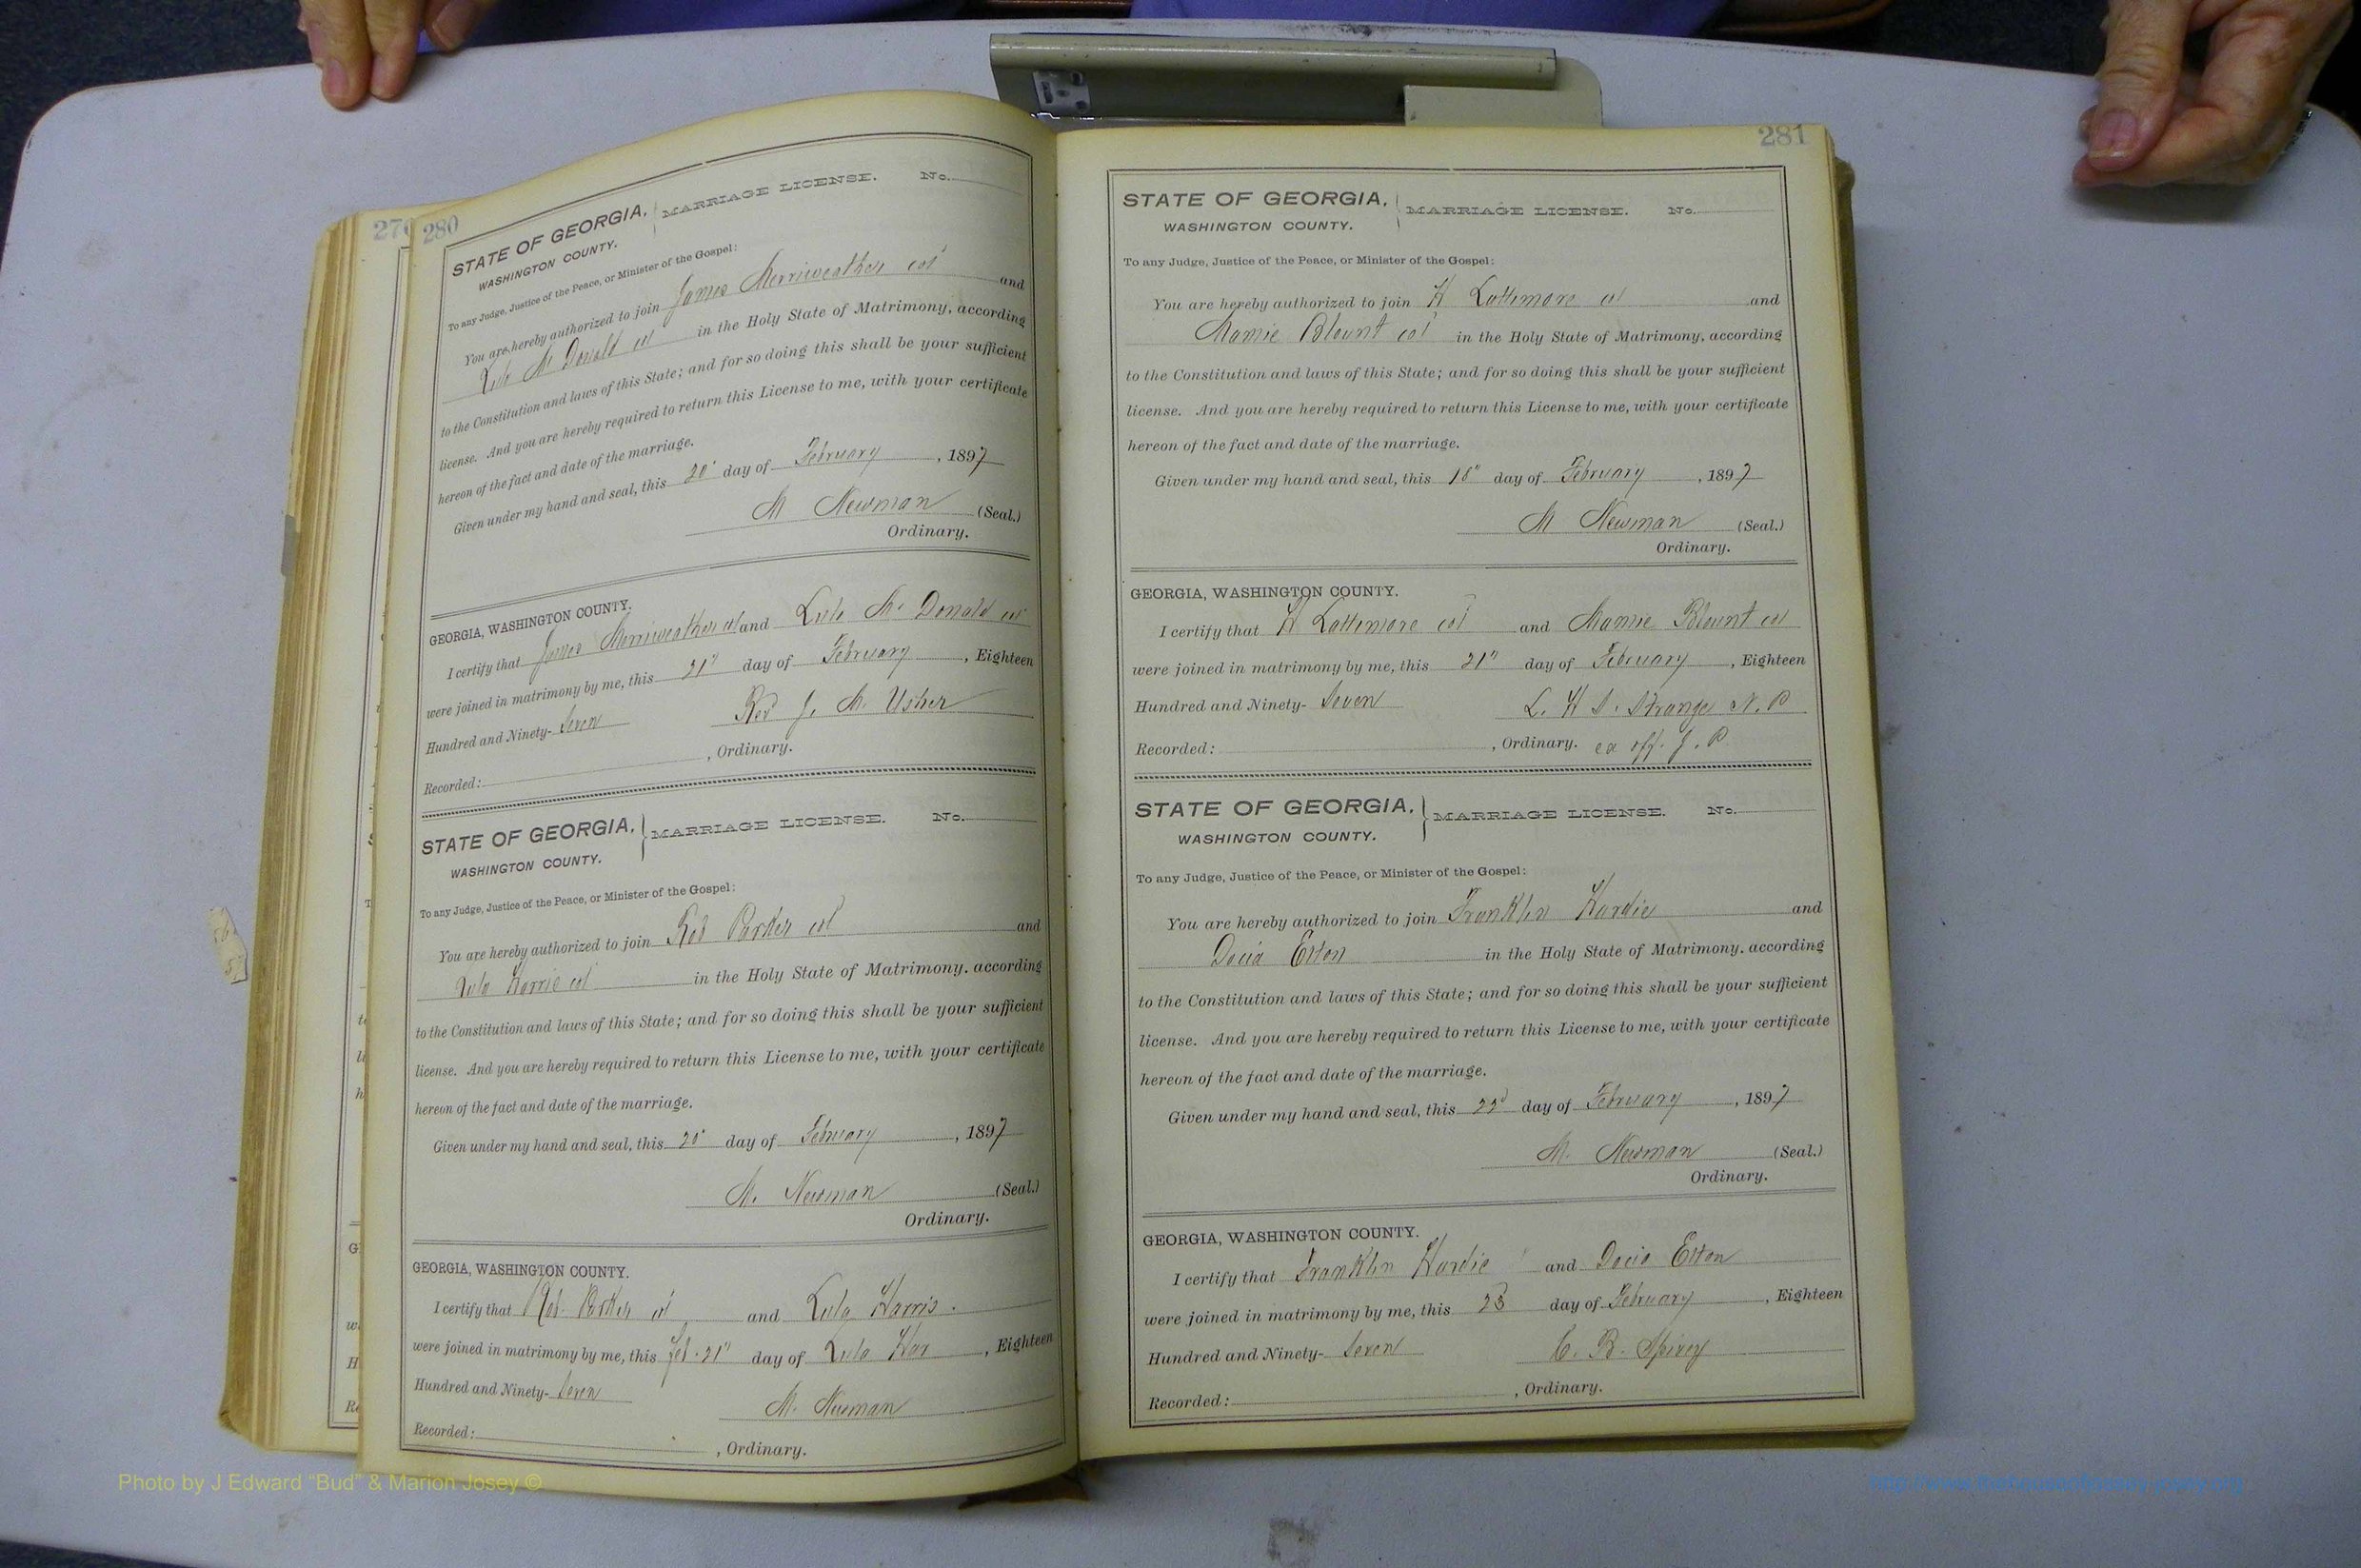 280
STATE OF GEORGIA, MARRIAGE LICENSE. No.
WASHINGTON COUNTY.
To any Judge, Justice of the Peace, or Minister of the Gospel:
You are hereby authorized to join James Merriweather col and
Lula McDonald col in the Holy State of Matrimony, according
to the Constitution and laws of this State; and for so doing this shall be your sufficient
license. And you are hereby required to return this License to me, with your certificate
hereon of the fact and date of the marriage.
Given under my hand and seal, this 20" day of February, 1897
M Newman (Seal.)
Ordinary.
GEORGIA, WASHINGTON COUNTY.
I certify that James Merriweather col and Lula McDonald col
were joined in matrimony by me, this 21" day of February, Eighteen
Hundred and Ninety-Seven Rev J. M. Usher
Recorded: , Ordinary.
STATE OF GEORGIA, MARRIAGE LICENSE. No.
WASHINGTON COUNTY.
To any Judge, Justice of the Peace, or Minister of the Gospel:
You are hereby authorized to join Rob Parker col and
Lula Harris col in the Holy State of Matrimony. according
to the Constitution and laws of this State; and for so doing this shall be your sufficient
license. And you are hereby required to return this License to me, with your certificate
hereon of the fact and date of the marriage.
Given under my hand and seal, this 20" day of February, 1897
M. Newman (Seal.)
Ordinary.
GEORGIA, WASHINGTON COUNTY.
I certify that Rob Parker col and Lula Harris.
were joined in matrimony by me, this Feb. 21" day of Lula Har, Eighteen
Hundred and Ninety-Seven M. Newman
Recorded: , Ordinary.
281
STATE OF GEORGIA, MARRIAGE LICENSE. No.
WASHINGTON COUNTY.
To any Judge, Justice of the Peace, or Minister of the Gospel:
You are hereby authorized to join H Lattimore col and
Mamie Blount col in the Holy State of Matrimony, according
to the Constitution and laws of this State; and for so doing this shall be your sufficient
license. And you are hereby required to return this License to me, with your certificate
hereon of the fact and date of the marriage.
Given under my hand and seal, this 18" day of February, 1897
M Newman (Seal.)
Ordinary.
GEORGIA, WASHINGTON COUNTY.
I certify that H Lattimore col and Mamie Blount col
were joined in matrimony by me, this 21" day of February, Eighteen
Hundred and Ninety-Seven L. H S. Strange N. P
Recorded: , Ordinary. ex off. J. P.
STATE OF GEORGIA, MARRIAGE LICENSE. No.
WASHINGTON COUNTY.
To any Judge, Justice of the Peace, or Minister of the Gospel:
You are hereby authorized to join Franklin Hardie and
Docia Elton in the Holy State of Matrimony. according
to the Constitution and laws of this State; and for so doing this shall be your sufficient
license. And you are hereby required to return this License to me, with your certificate
hereon of the fact and date of the marriage.
Given under my hand and seal, this 22d day of February, 1897
M. Newman (Seal.)
Ordinary.
GEORGIA, WASHINGTON COUNTY.
I certify that Franklin Hardie and Docia Elton
were joined in matrimony by me, this 23 day of February, Eighteen
Hundred and Ninety-Seven C. B. Spivey
Recorded: , Ordinary.
Photo by J Edward “Bud” & Marion Josey ©